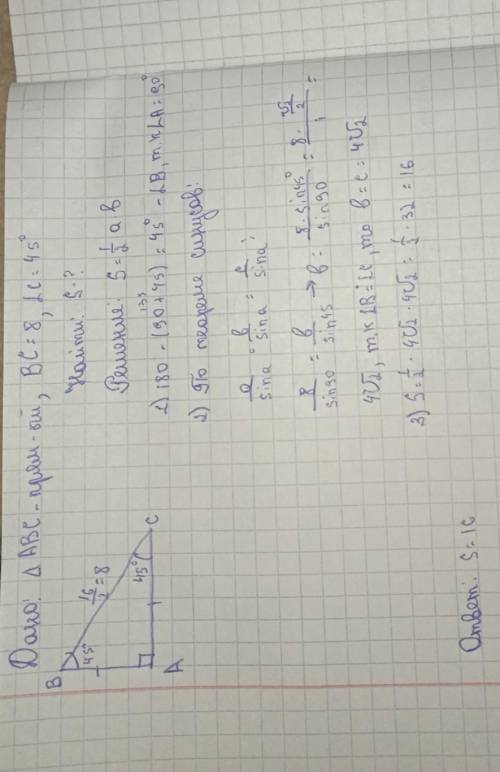 Дано: Δ ABC - прям-ый, BC = 8, ∠C = 45°
Найти: S - ?
Решение: S = 1/2 a·b
1) 180 - (90 + 45) = 45° - ∠B, т.к ∠A = 90°
135
2) По теореме синусов:
a/sin a = b/sin a = c/sin a;
8/sin 90 = b/sin 45 → b = 8·sin 45°/sin 90 = 8·√2/2 / 1 =
4√2, т.к ∠B = ∠C, то b = c = 4√2
3) S = 1/2 · 4√2 · 4√2 = 1/2 · 32 = 16
B
45°
= 8
45°
C
A
Ответ: S = 16